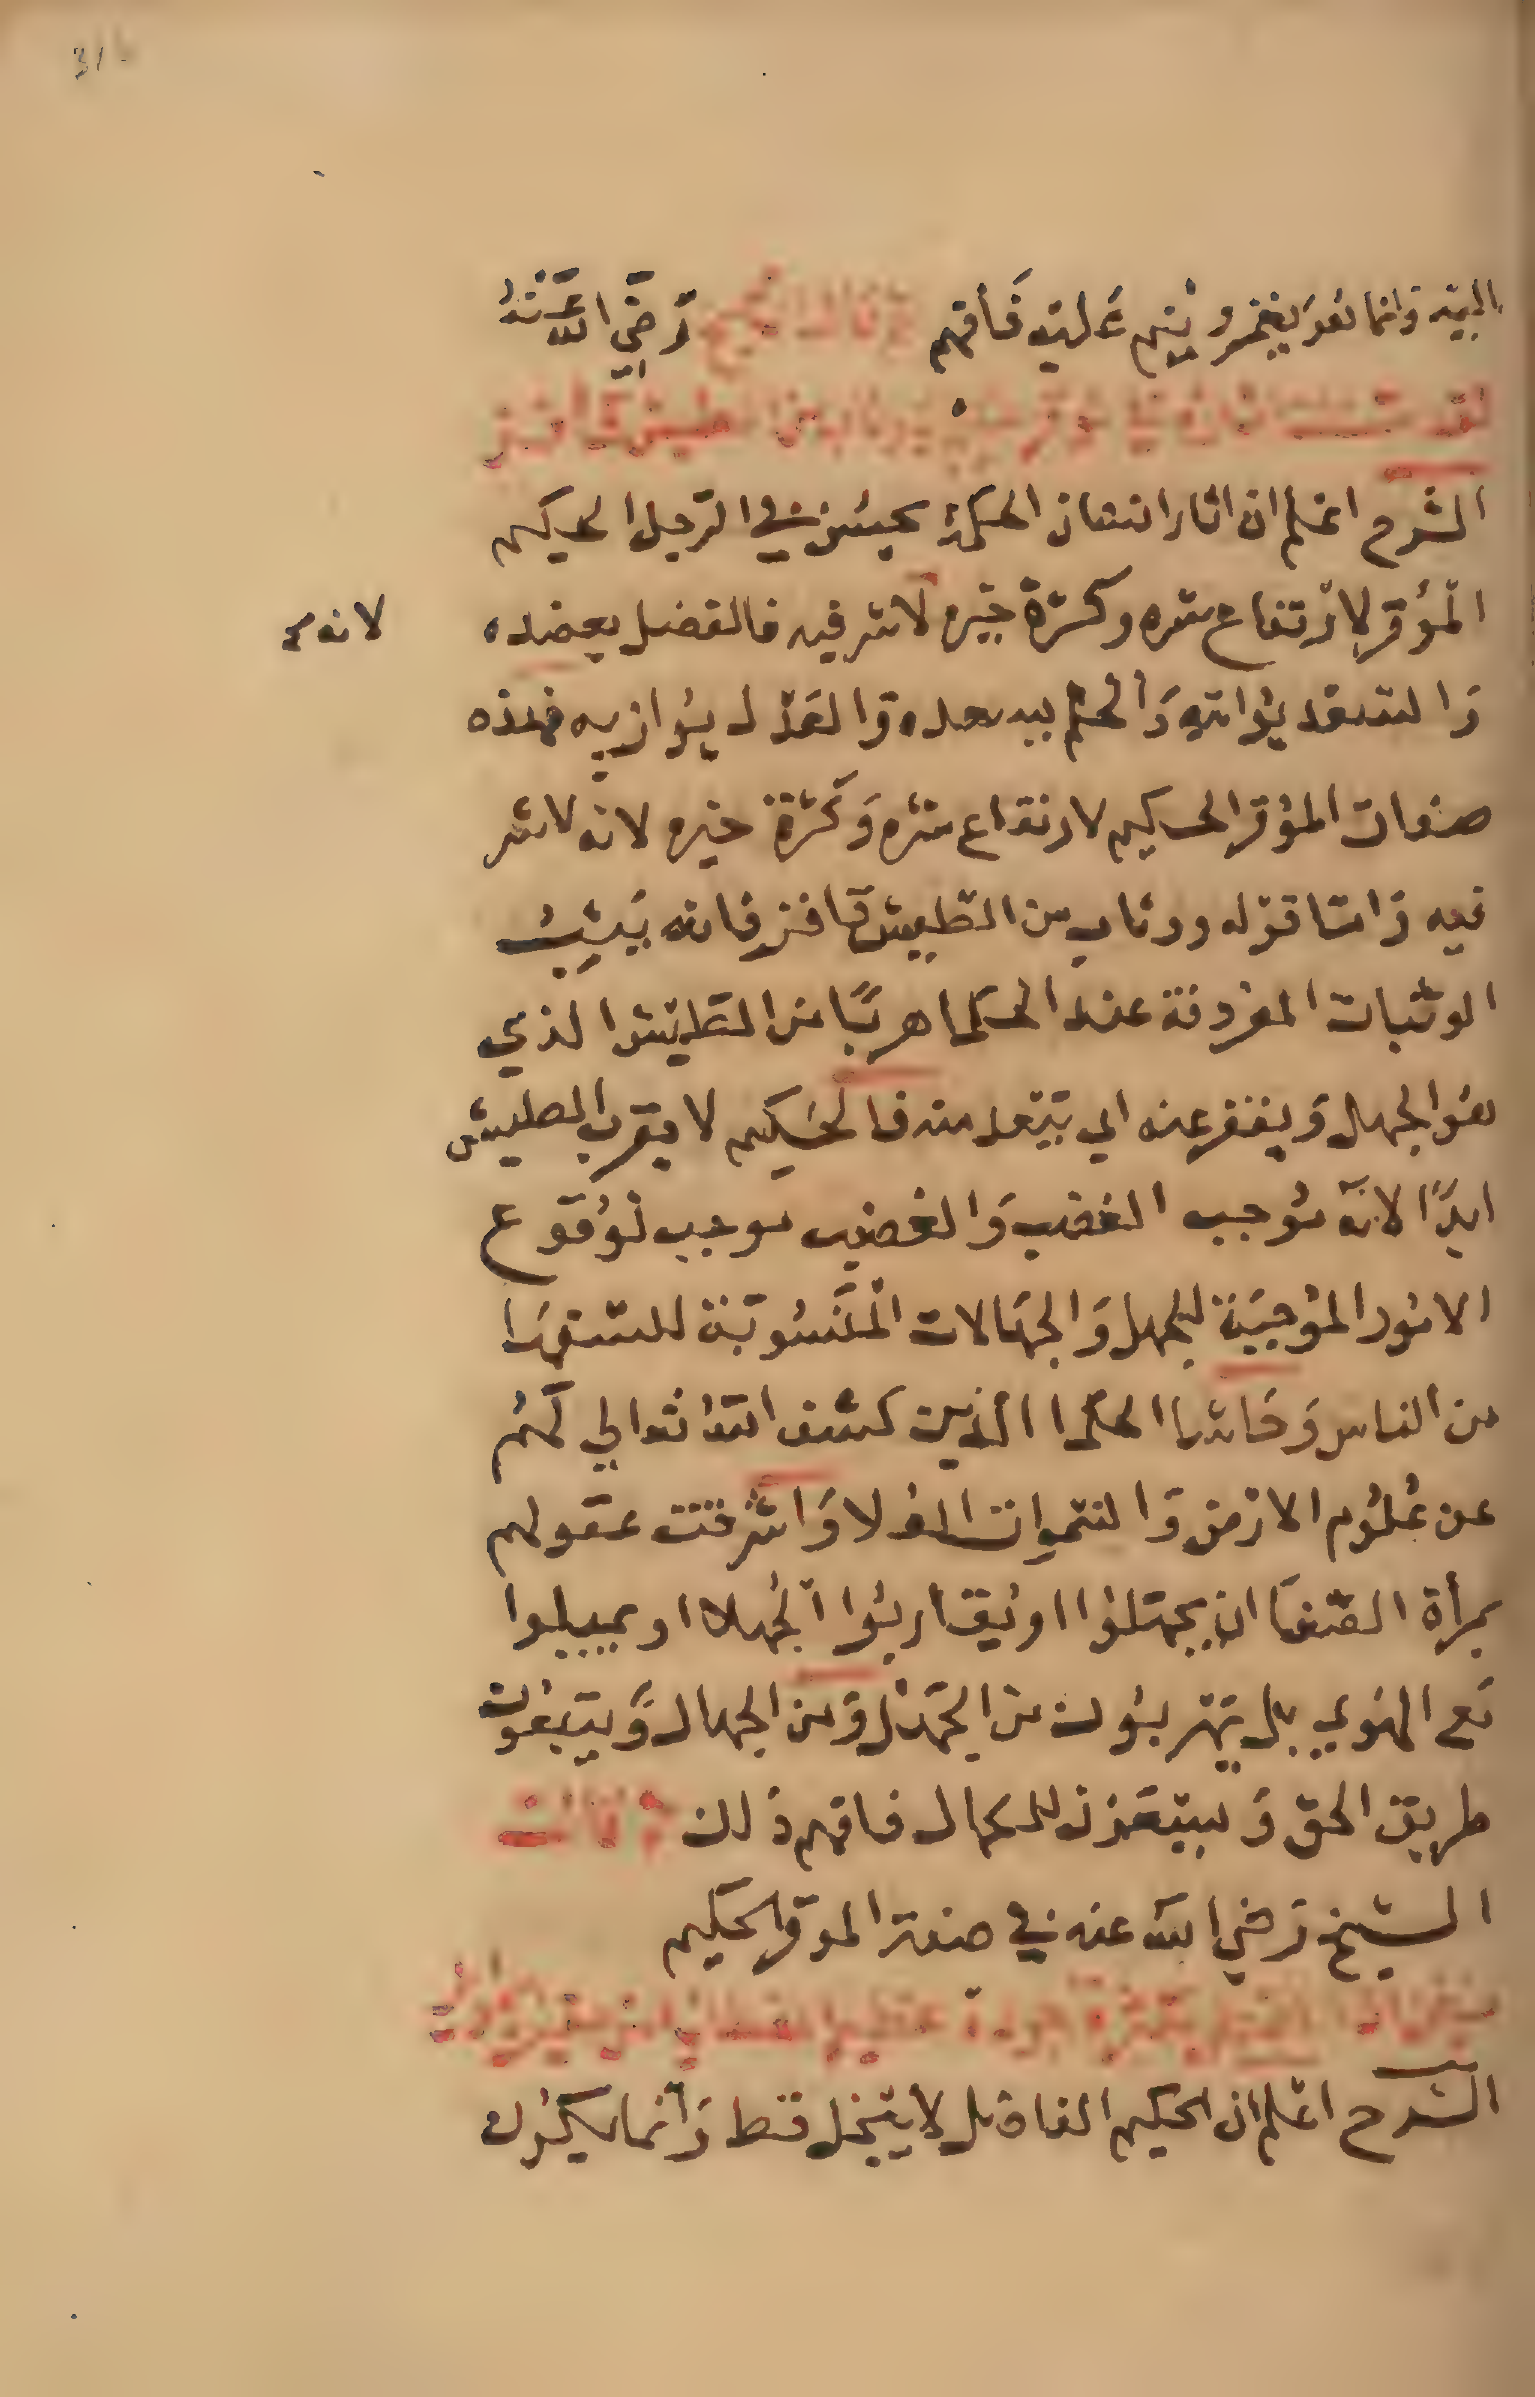 اليه وانما هو يغفر وينعم عليه فافهم وقال الشيخ رضي الله عنه
الشرح اعلم ان اثار اتقان الحكمة يحسن في الرجل الحكيم
المؤقر لارتفاع شره وكثرة خيره لا شر فيه فالفضل يعضده
لانه
والسعد يواتيه والحلم يساعده والعدل يوازيه فهذه
صفات المؤقر الحكيم لارتفاع شره وكثرة خيره لانه لا شر
فيه واما قوله ووثاب من الطيش قافز فانه يثب
الوثبات المعروفة عند الحكما هربًا من الطيش الذي
هو الجهل ويقفز عنه اي يبتعد منه فالحكيم لا يقرب الطيش
ابدًا لانه يوجب الغضب والغضب موجب لوقوع
الامور الموجبة للجهل والجهالات المنسوبة للسفها
من الناس وحاشا الحكما الذين كشف الله تعالي لهم
عن علوم الارض والسموات العلا واشرقت عقولهم
بمرأة الصفا ان يجهلوا او يقاربوا الجهلا او يميلوا
مع الهوي بل يهربون من الجهل ومن الجهال ويتبعون
طريق الحق و للكمال فافهم ذلك وقال
الشيخ رضي الله عنه في صفة الموقر الحكيم
الشرح اعلم ان الحكيم الفاضل لا يبخل قط وانما يكون